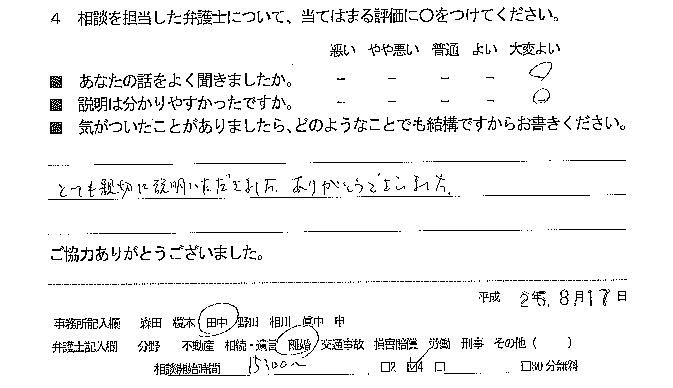 4 相談を担当した弁護士について、当てはまる評価に○をつけてください。
悪い やや悪い 普通 よい 大変よい
あなたの話をよく聞きましたか。 - - - - ○
説明は分かりやすかったですか。 - - - - ○
気がついたことがありましたら、どのようなことでも結構ですからお書きください。
とても親切に説明いただきました。ありがとうございました。
ご協力ありがとうございました。
平成 25年 8月17日
事務所記入欄 森田 榎本 田中 野田 相川 眞中 申
弁護士記入欄 分野 不動産 相続・遺言 離婚 交通事故 損害賠償 労働 刑事 その他 ( )
相談開始時間 □2 ☑4 □ □30分無料